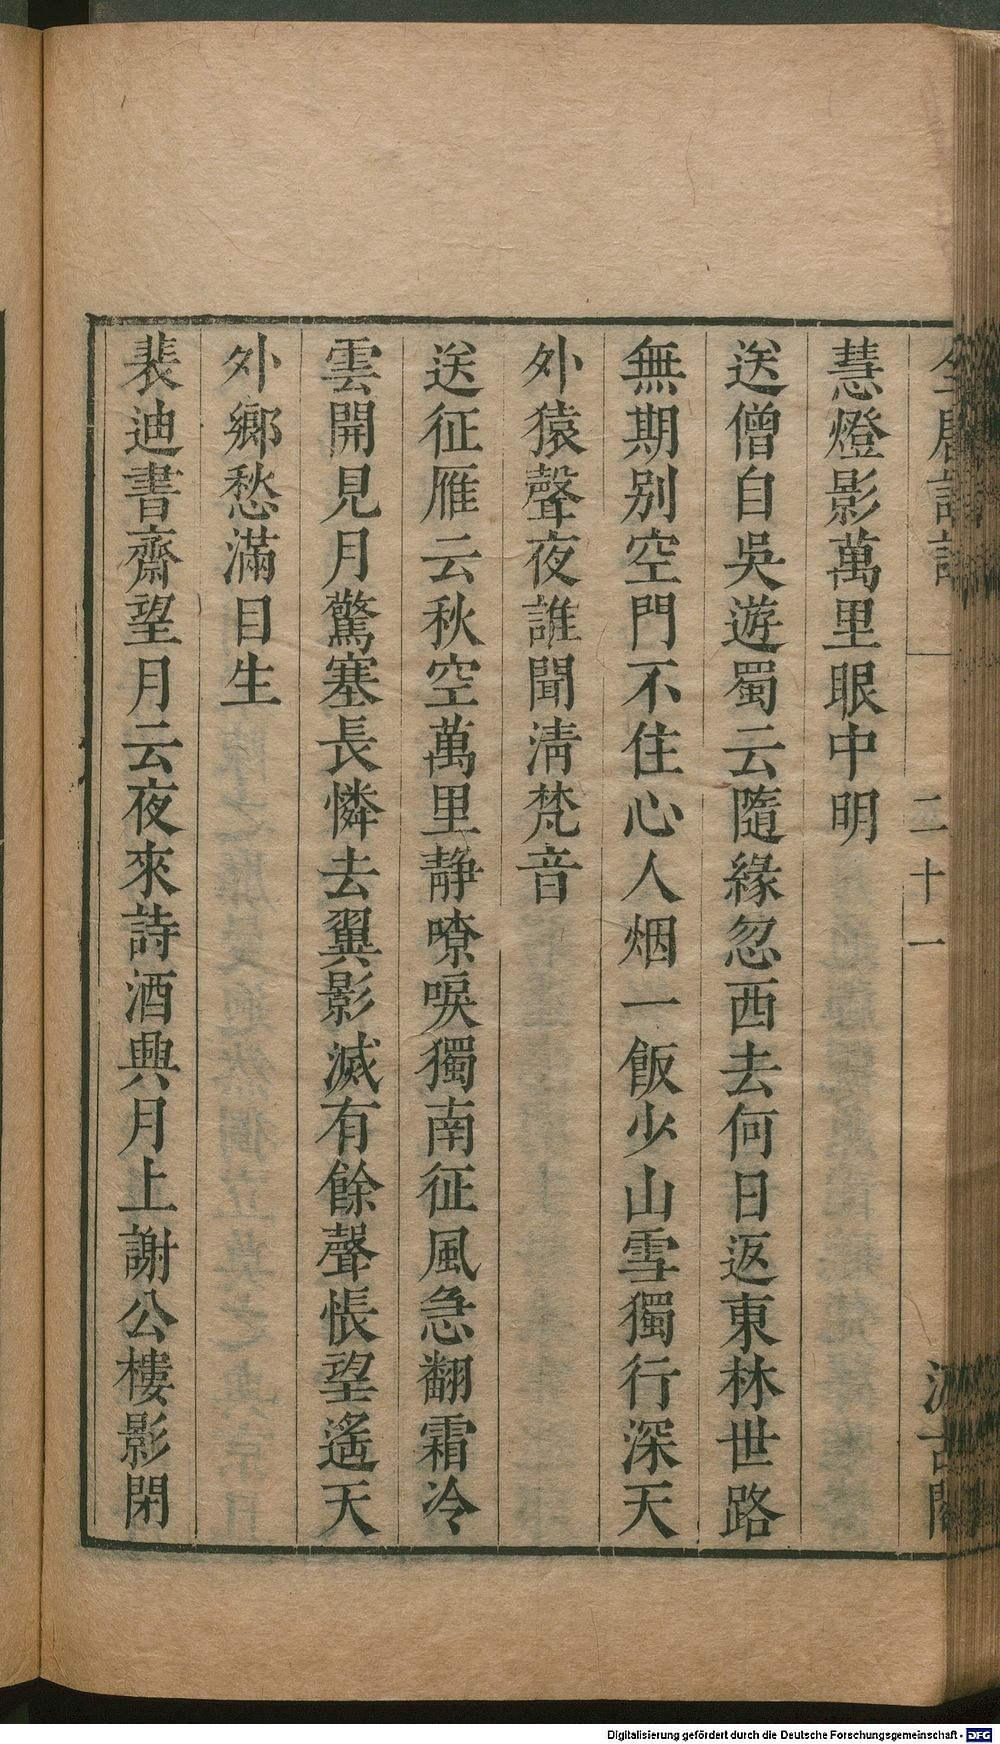 全唐詩話
二十一
汲古閣
慧燈影萬里眼中明
送僧自吳遊蜀云隨緣忽西去何日返東林世路
無期別空門不住心人烟一飯少山雪獨行深天
外猿聲夜誰聞清梵音
送征雁云秋空萬里靜嘹唳獨南征風急翻霜冷
雲開見月驚塞長憐去翼影滅有餘聲悵望遙天
外鄉愁滿目生
裴迪書齋望月云夜來詩酒興月上謝公樓影閉
Digitalisierung gefördert durch die Deutsche Forschungsgemeinschaft - DFG